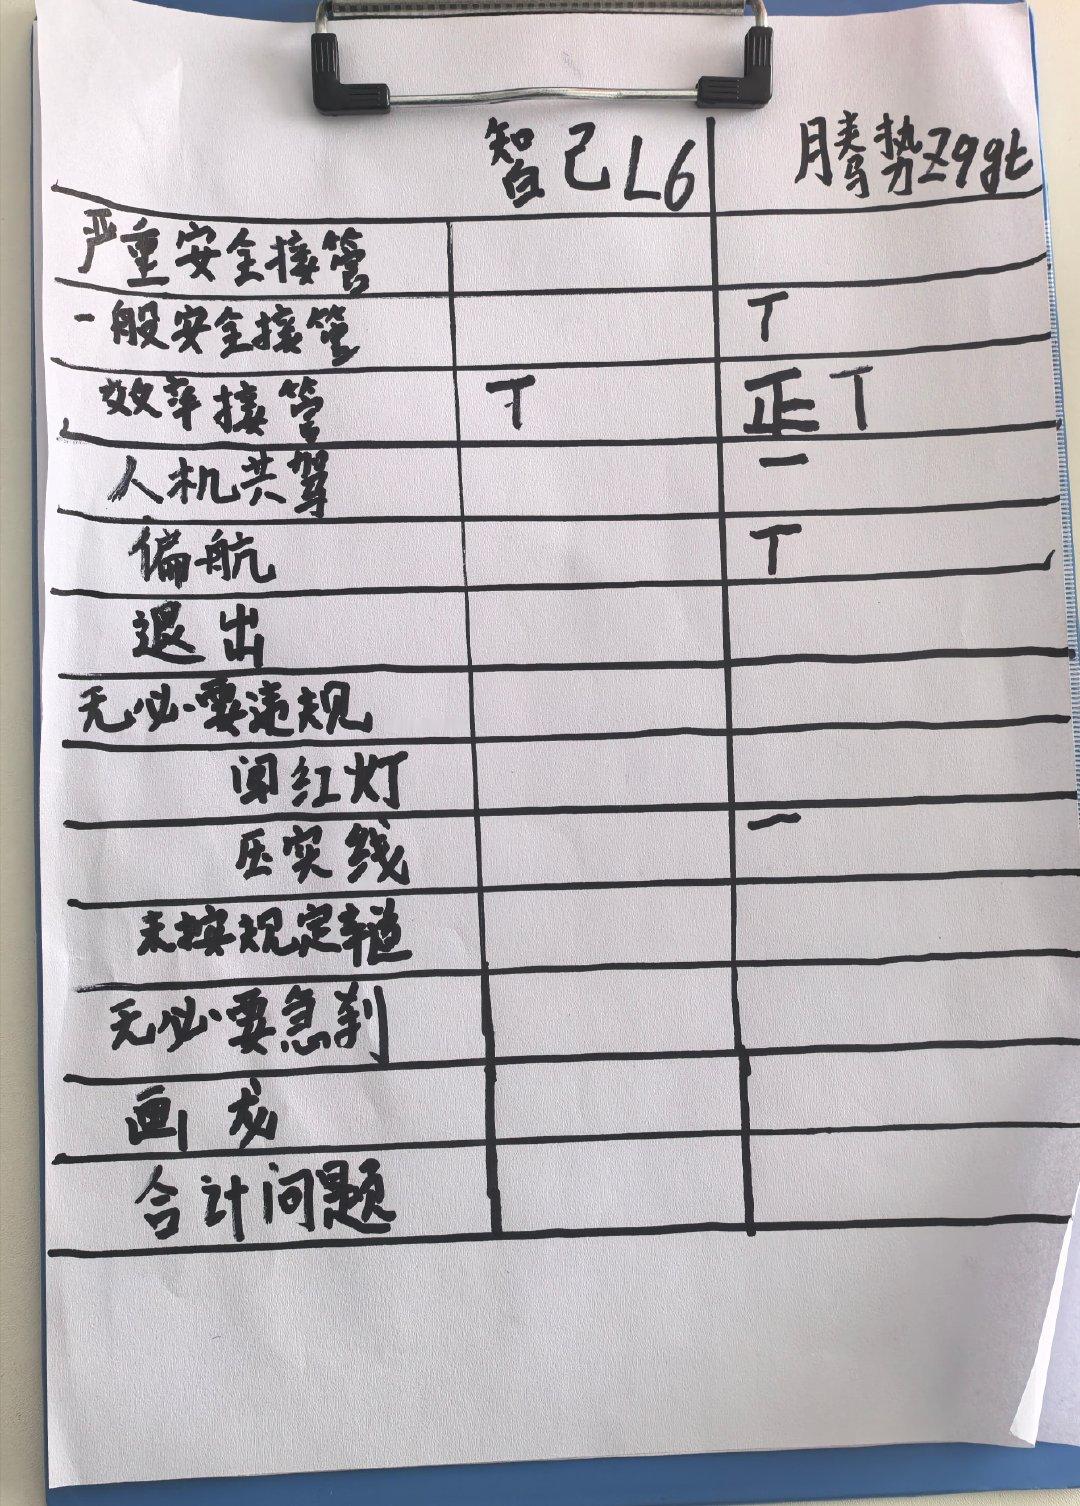 智己L6 腾势Z9gt
严重安全接管
一般安全接管 T
效率接管 T 正T
人机共驾 一
偏航 T
退出
无必要违规
闯红灯
压实线 一
未按规定车道
无必要急刹
画龙
合计问题